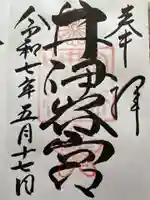 奉拝
井津嶽宮
令和七年五月十七日